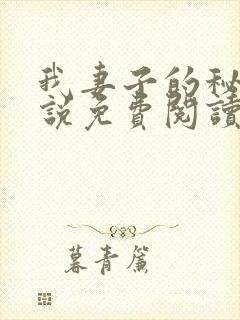 我妻子的秘
說免費閱讀
暮青簾